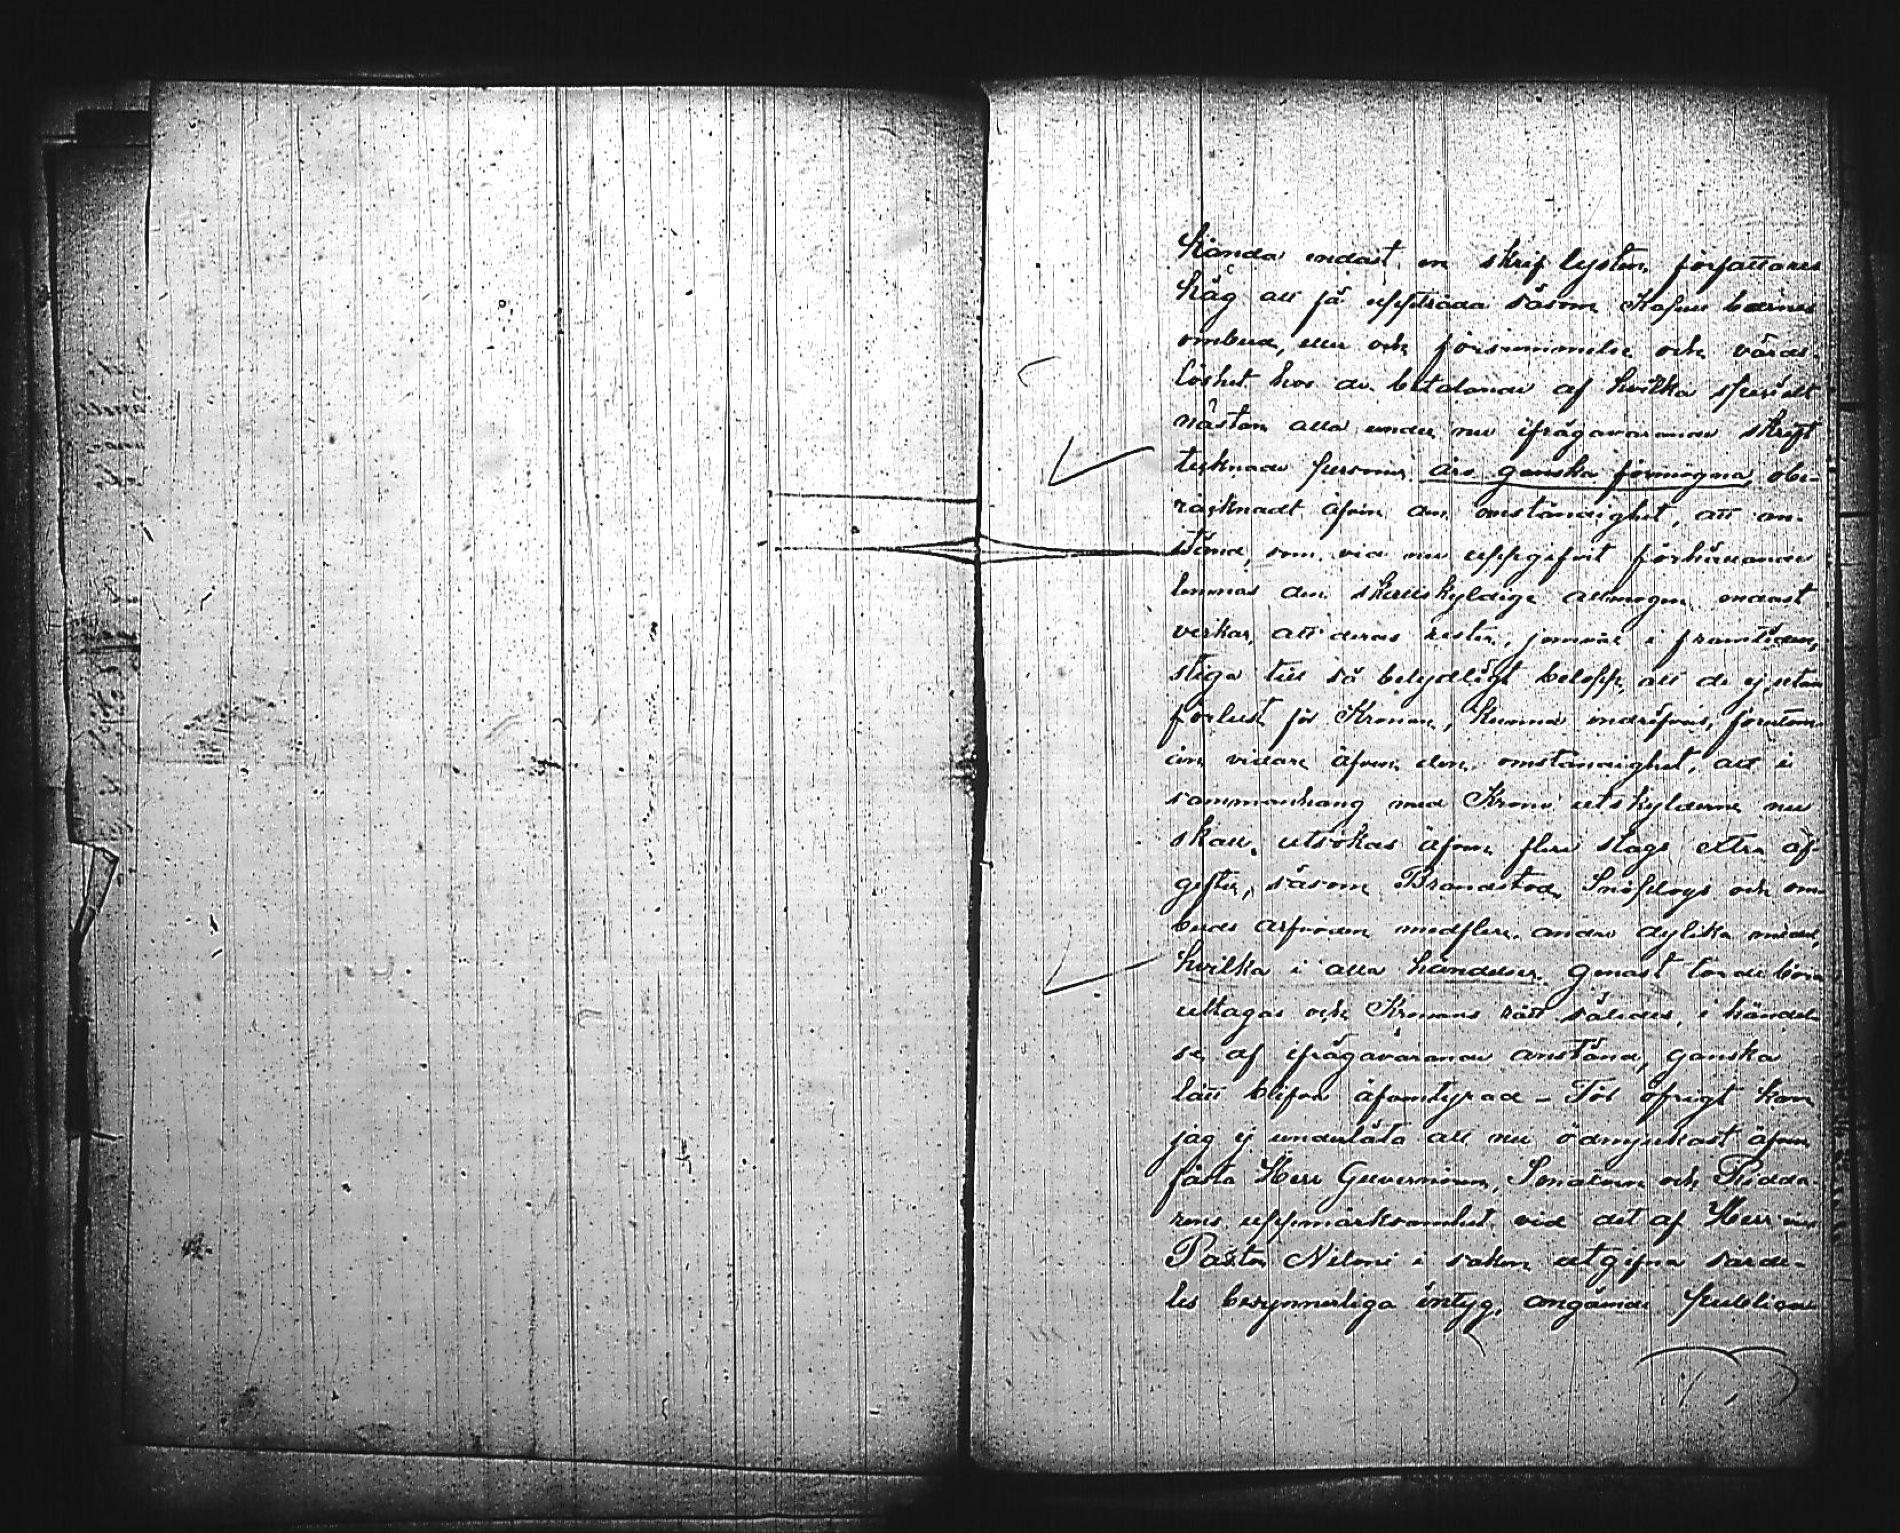 hända endast en skrif lysten författares
håg att få uppträda såsom
ombud, eller och försummelse och vårds-
löshet hos de betalande af hvilka specielt
nästan alla under nu ifrågavarande skrift
tecknade personer äro ganska förmögna obe-
räcknadt äfven den omständighet, att an-
stånd, som vid nu uppgifvit förhållande
lemnas den skattskyldige allmogen endast
verkar, att deras rester, jemväl i framtiden,
stiga till så betydligt belopp, att de ej, utan
förlust för Kronan, kunna indrifvas, förutom
vidare äfven den omständighet, att i
sammanhang med Krono utskylderne nu
skall utsökas äfven flere slags extra af-
gifter, såsom Brandstod, Snöplogs och om-
buds arfvoden medflere andre dylika medel,
hvilka i alla händelser genast torde böra
uttagas och Kronans rätt således, i händel-
se af ifrågavarande anstånd, ganska
lätt blifva äfventyrad – För öfrigt kan
jag ej underlåta att nu ödmjukast äfven
fästa Herr Guvernören, Senatorn och Ridda
rens uppmärksamhet vid det af Herr
Pastor i saken utgifna särde-
les besynnerliga intyg, angående